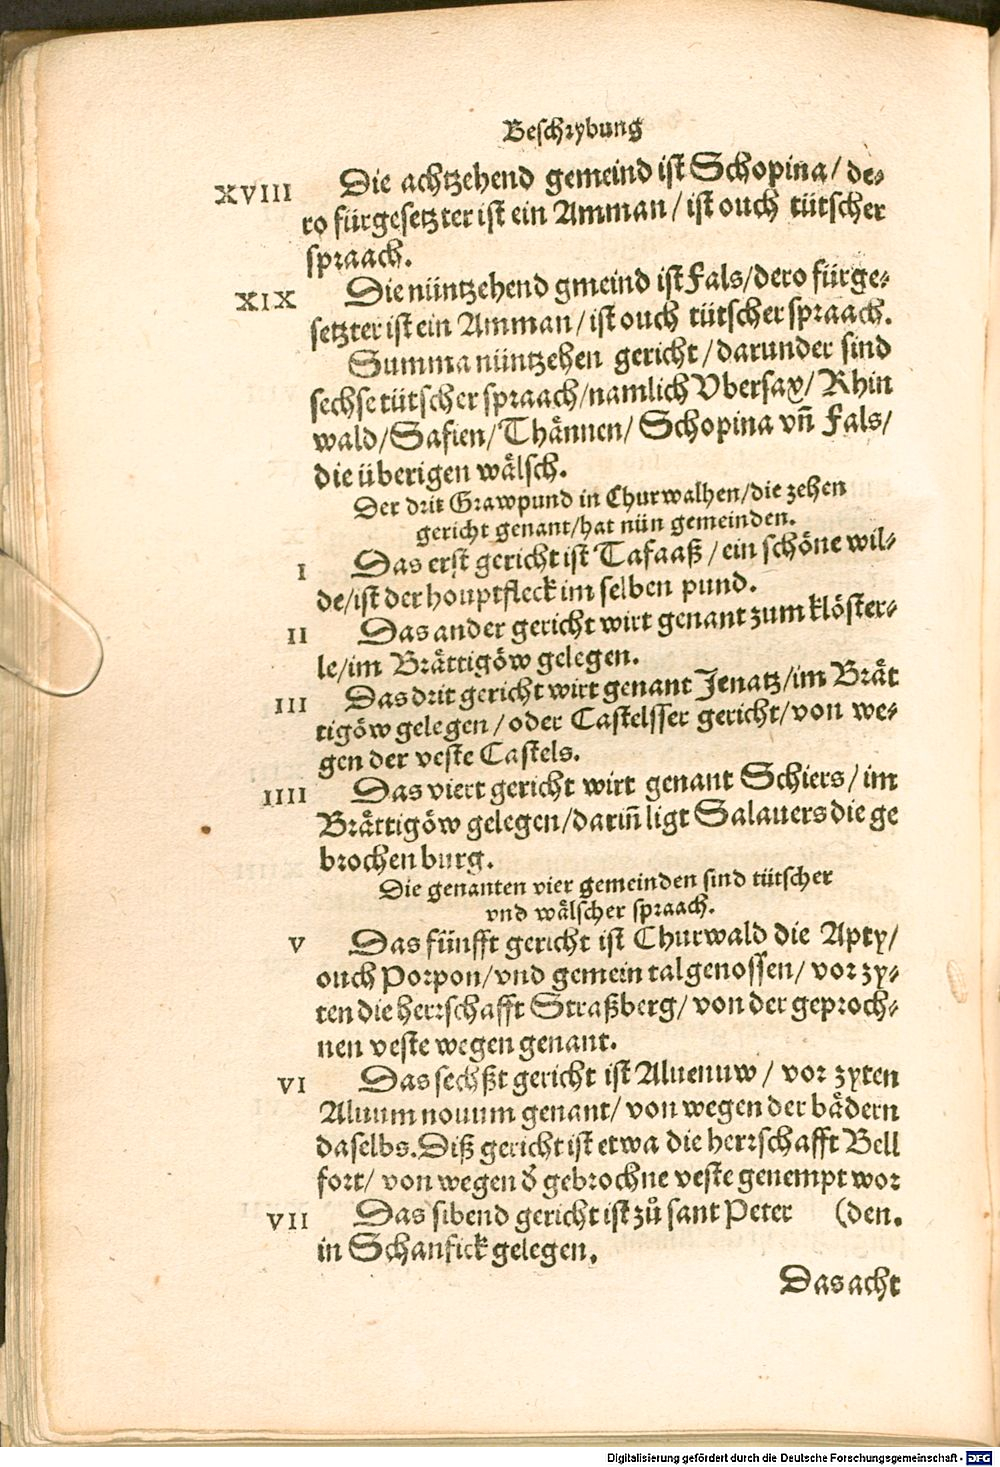 Beschrybung
XVIII Die achtzehend gemeind ist Schopina/ de-
ro fürgesetzter ist ein Amman/ ist ouch tütscher
spraach.
XIX Die nüntzehend gmeind ist Fals/dero fürge-
setzter ist ein Amman/ist ouch tütscher spraach.
Summa nüntzehen gericht/darunder sind
sechse tütscher spraach/namlich Vbersax/Rhin
wald/Safien/Thännen/Schopina vñ Fals/
die überigen wälsch.
Der drit Grawpund in Churwalhen/die zehen
gericht genant/hat nün gemeinden.
I Das erst gericht ist Tafaaß/ein schöne wil-
de/ist der houptfleck im selben pund.
II Das ander gericht wirt genant zum klöster-
le/im Brättigöw gelegen.
III Das drit gericht wirt genant Jenatz/im Brät
tigöw gelegen/oder Castelsser gericht/von we-
gen der veste Castels.
IIII Das viert gericht wirt genant Schiers/im
Brättigöw gelegen/dariñ ligt Salauers die ge
brochen burg.
Die genanten vier gemeinden sind tütscher
vnd wälscher spraach.
V Das fünfft gericht ist Churwald die Apty/
ouch Porpon/vnd gemein talgenossen/vor zy-
ten die herrschafft Straßberg/von der geproch-
nen veste wegen genant.
VI Das sechßt gericht ist Aluenuw/ vor zyten
Aluum nouum genant/von wegen der bädern
daselbs. Diß gericht ist etwa die herrschafft Bell
fort/ von wegen d̕ gebrochne veste genempt wor
VII Das sibend gericht ist zů sant Peter (den.
in Schanfick gelegen.
Das acht
Digitalisierung gefördert durch die Deutsche Forschungsgemeinschaft - DFG